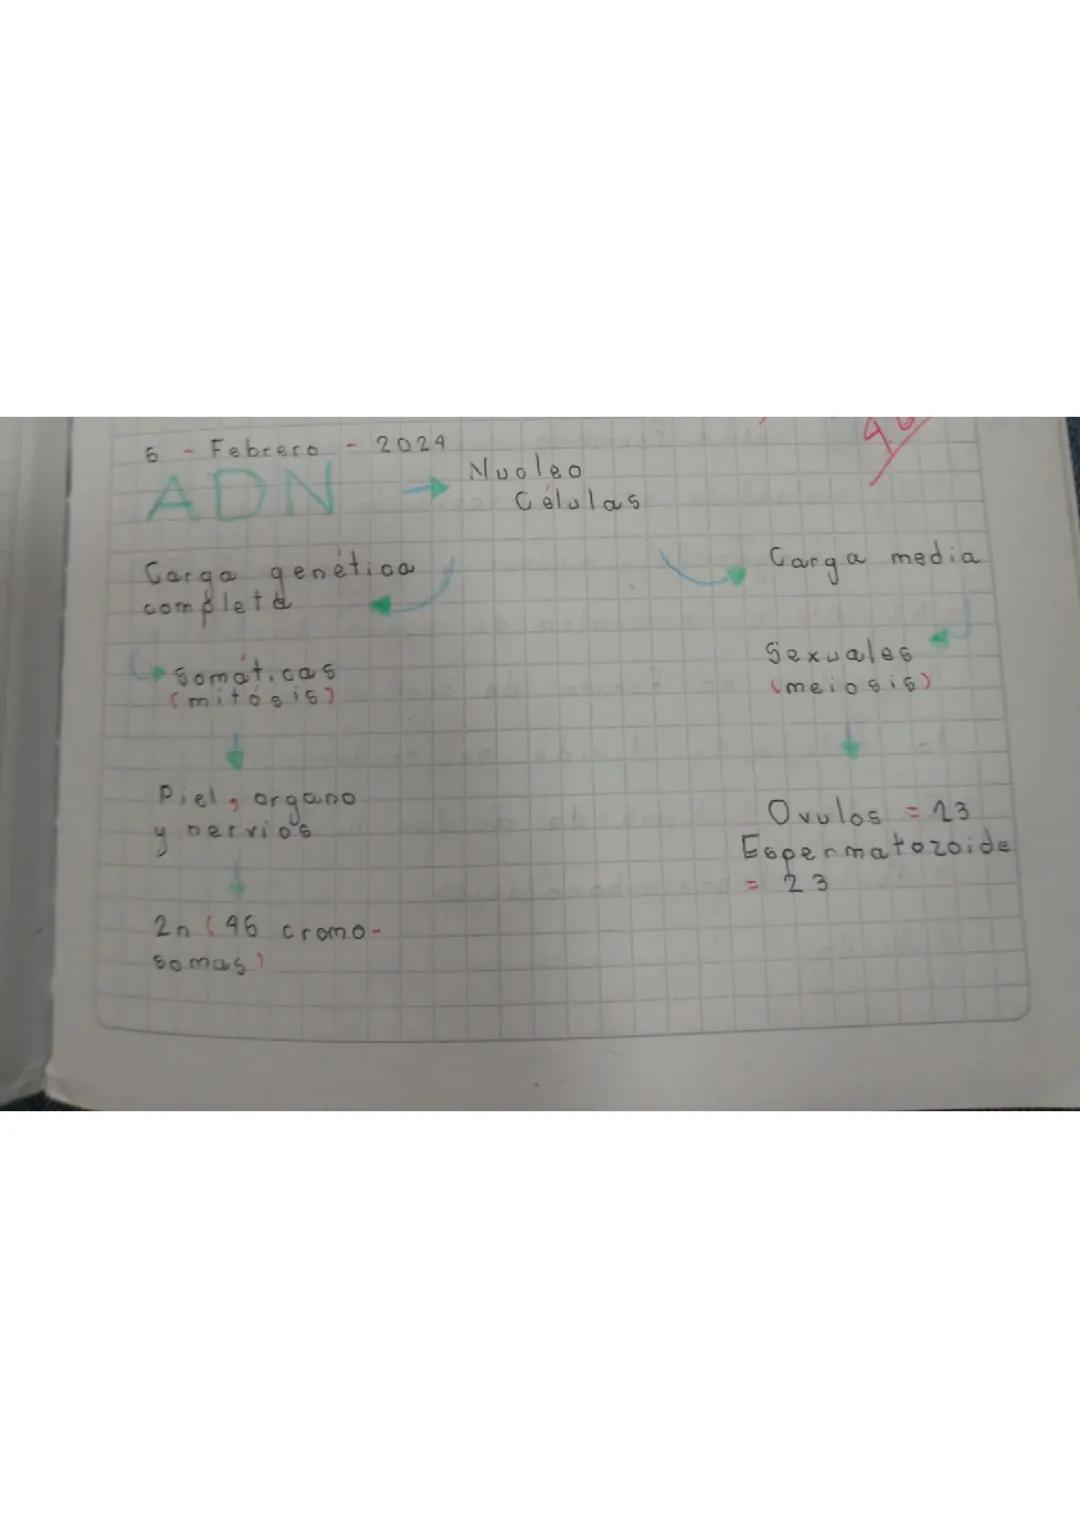 5 - Febrero - 2024
ADN → Nucleo
Células
Carga genética
completa
Carga media
Somáticas
(mitósis)
Sexuales
(meiosis)
Piel, organo
y nervios
Ovulos = 23
Espermatozoide
= 23
2n (46 cromo-
somas)